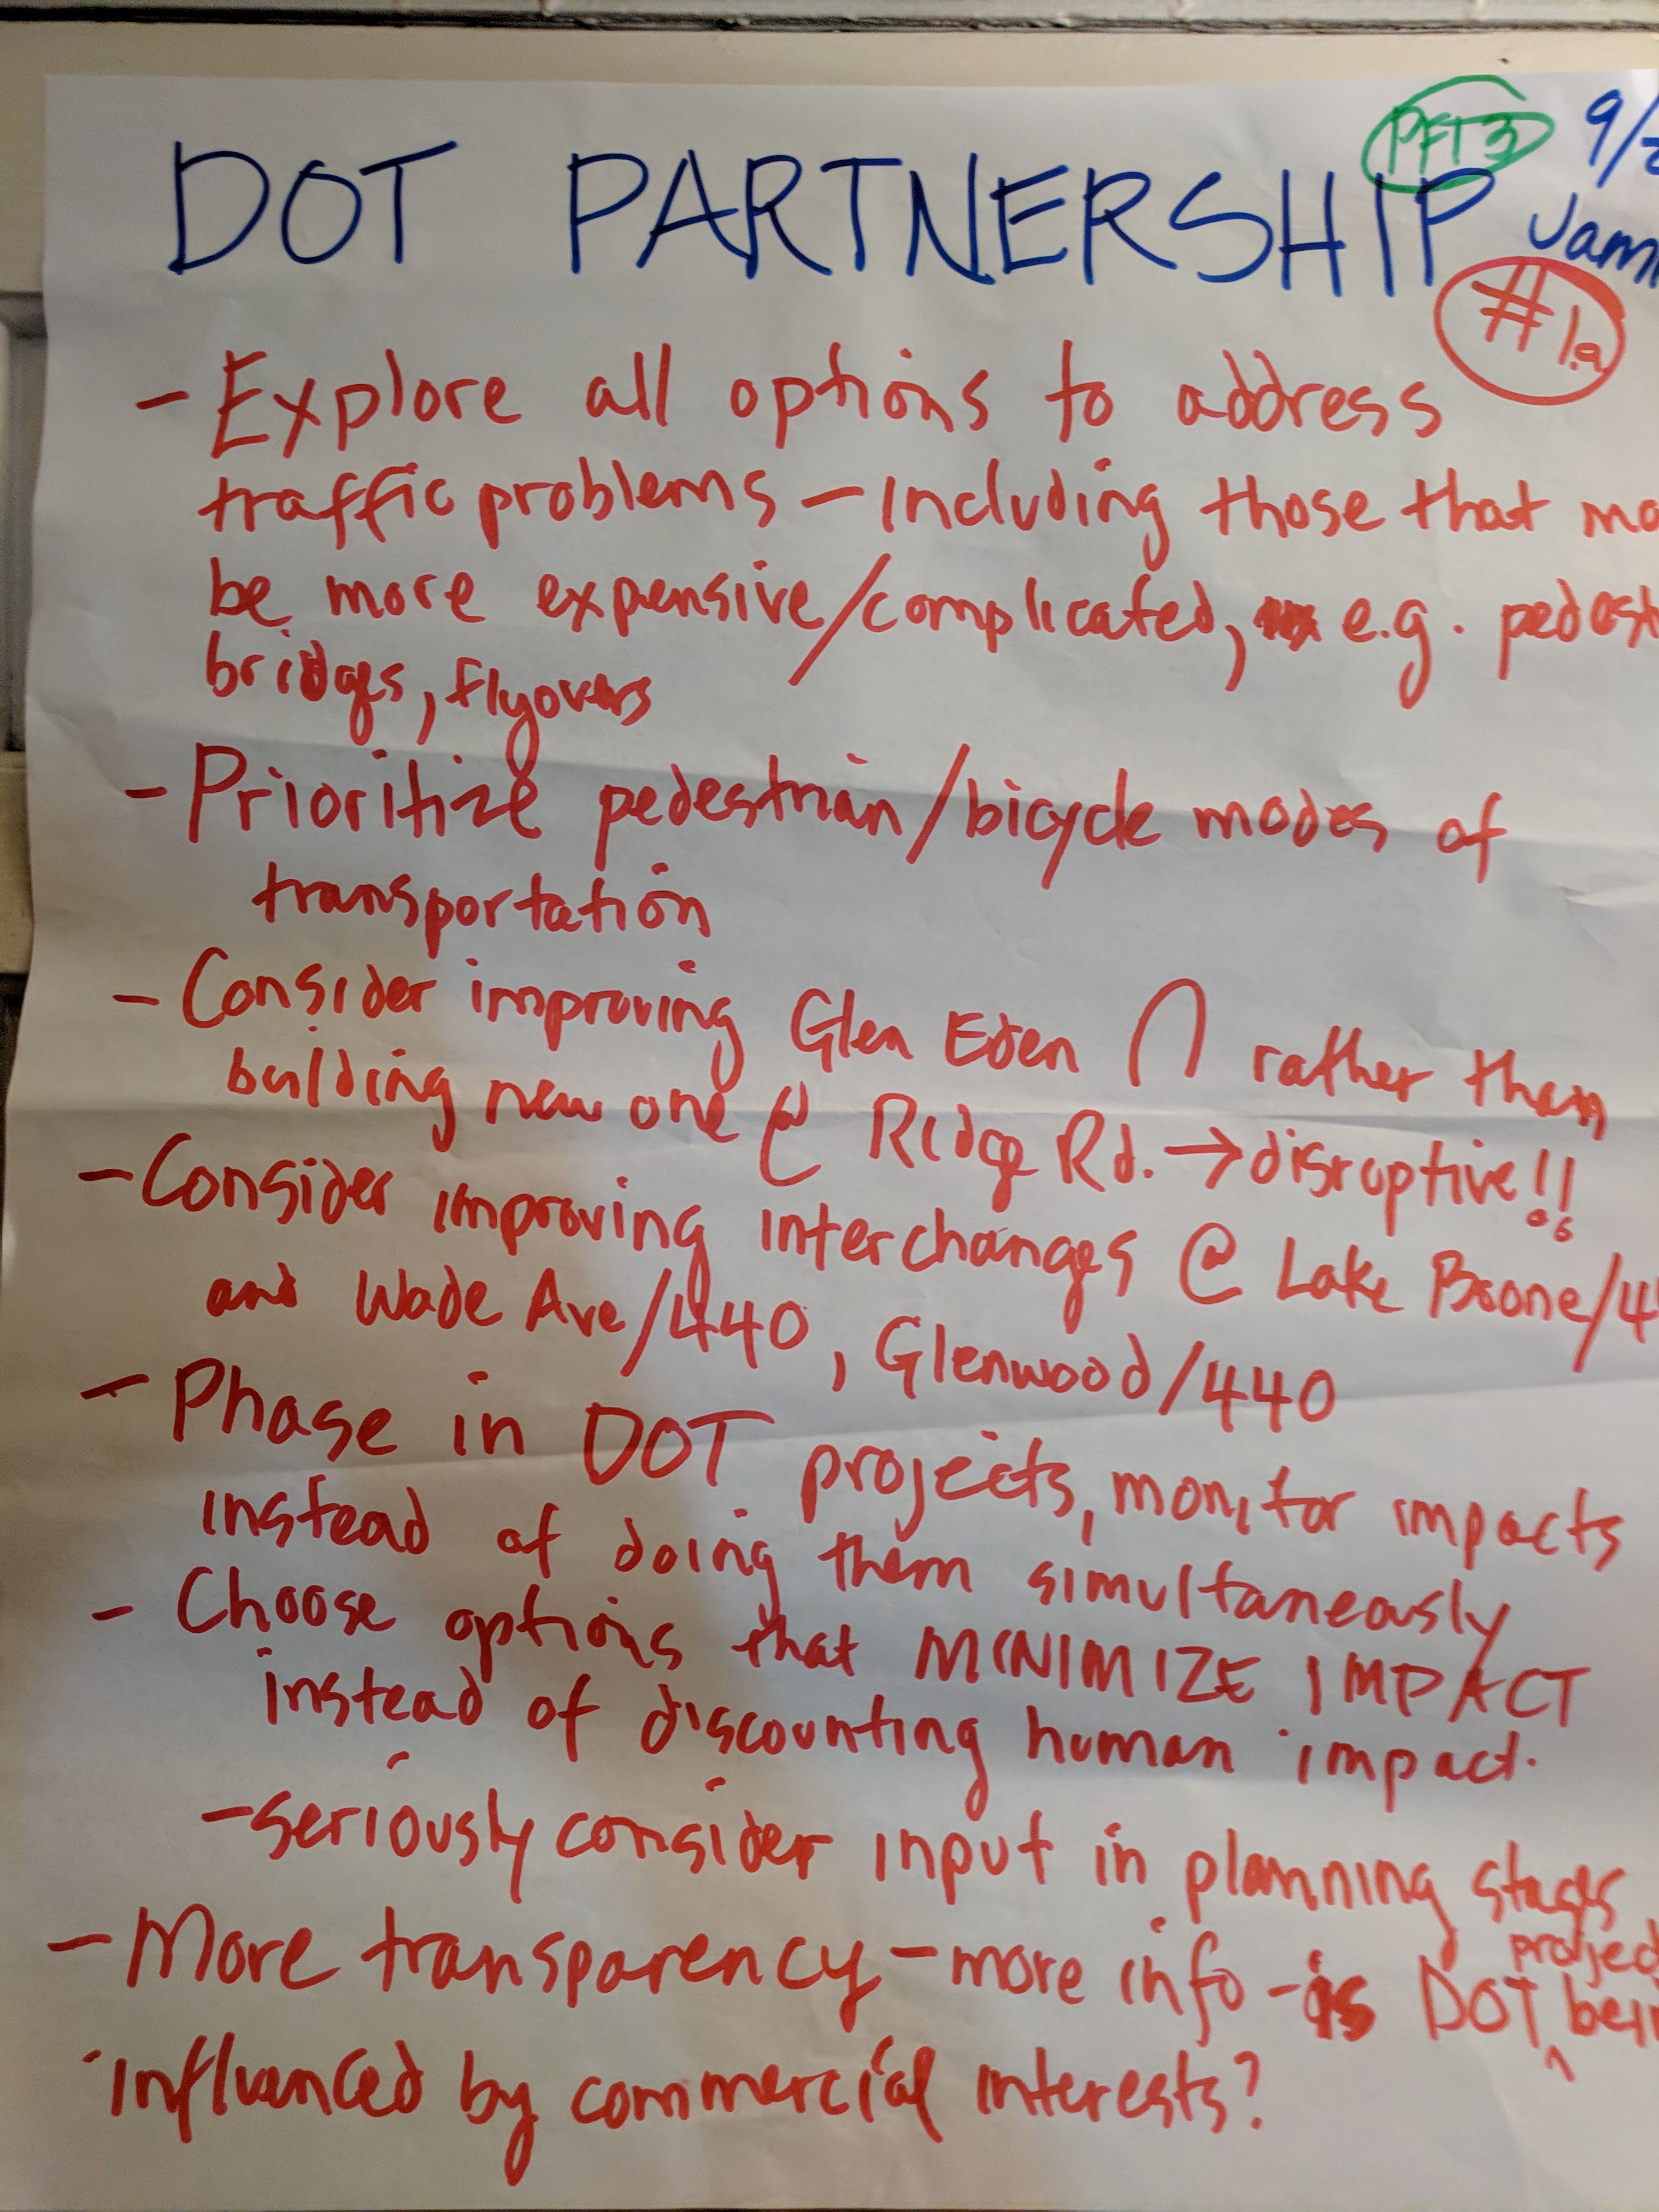 PFT3 9/
DOT PARTNERSHIP
#1a
- Explore all options to address
traffic problems - including those that
be more expensive/complicated, e.g.
bridges, flyovers
- Prioritize pedestrian/bicycle modes of
transportation
- Consider improving Glen Eden ∩ rather than
building new one @ Ridge Rd. → disruptive!!
- Consider improving interchanges @ Lake Boone/4
and Wade Ave/440, Glenwood/440
- Phase in DOT projects, monitor impacts
instead of doing them simultaneously
- Choose options that MINIMIZE IMPACT
instead of discounting human impact.
- seriously consider input in planning stages
- More transparency - more info - is DOT
influenced by commercial interests?